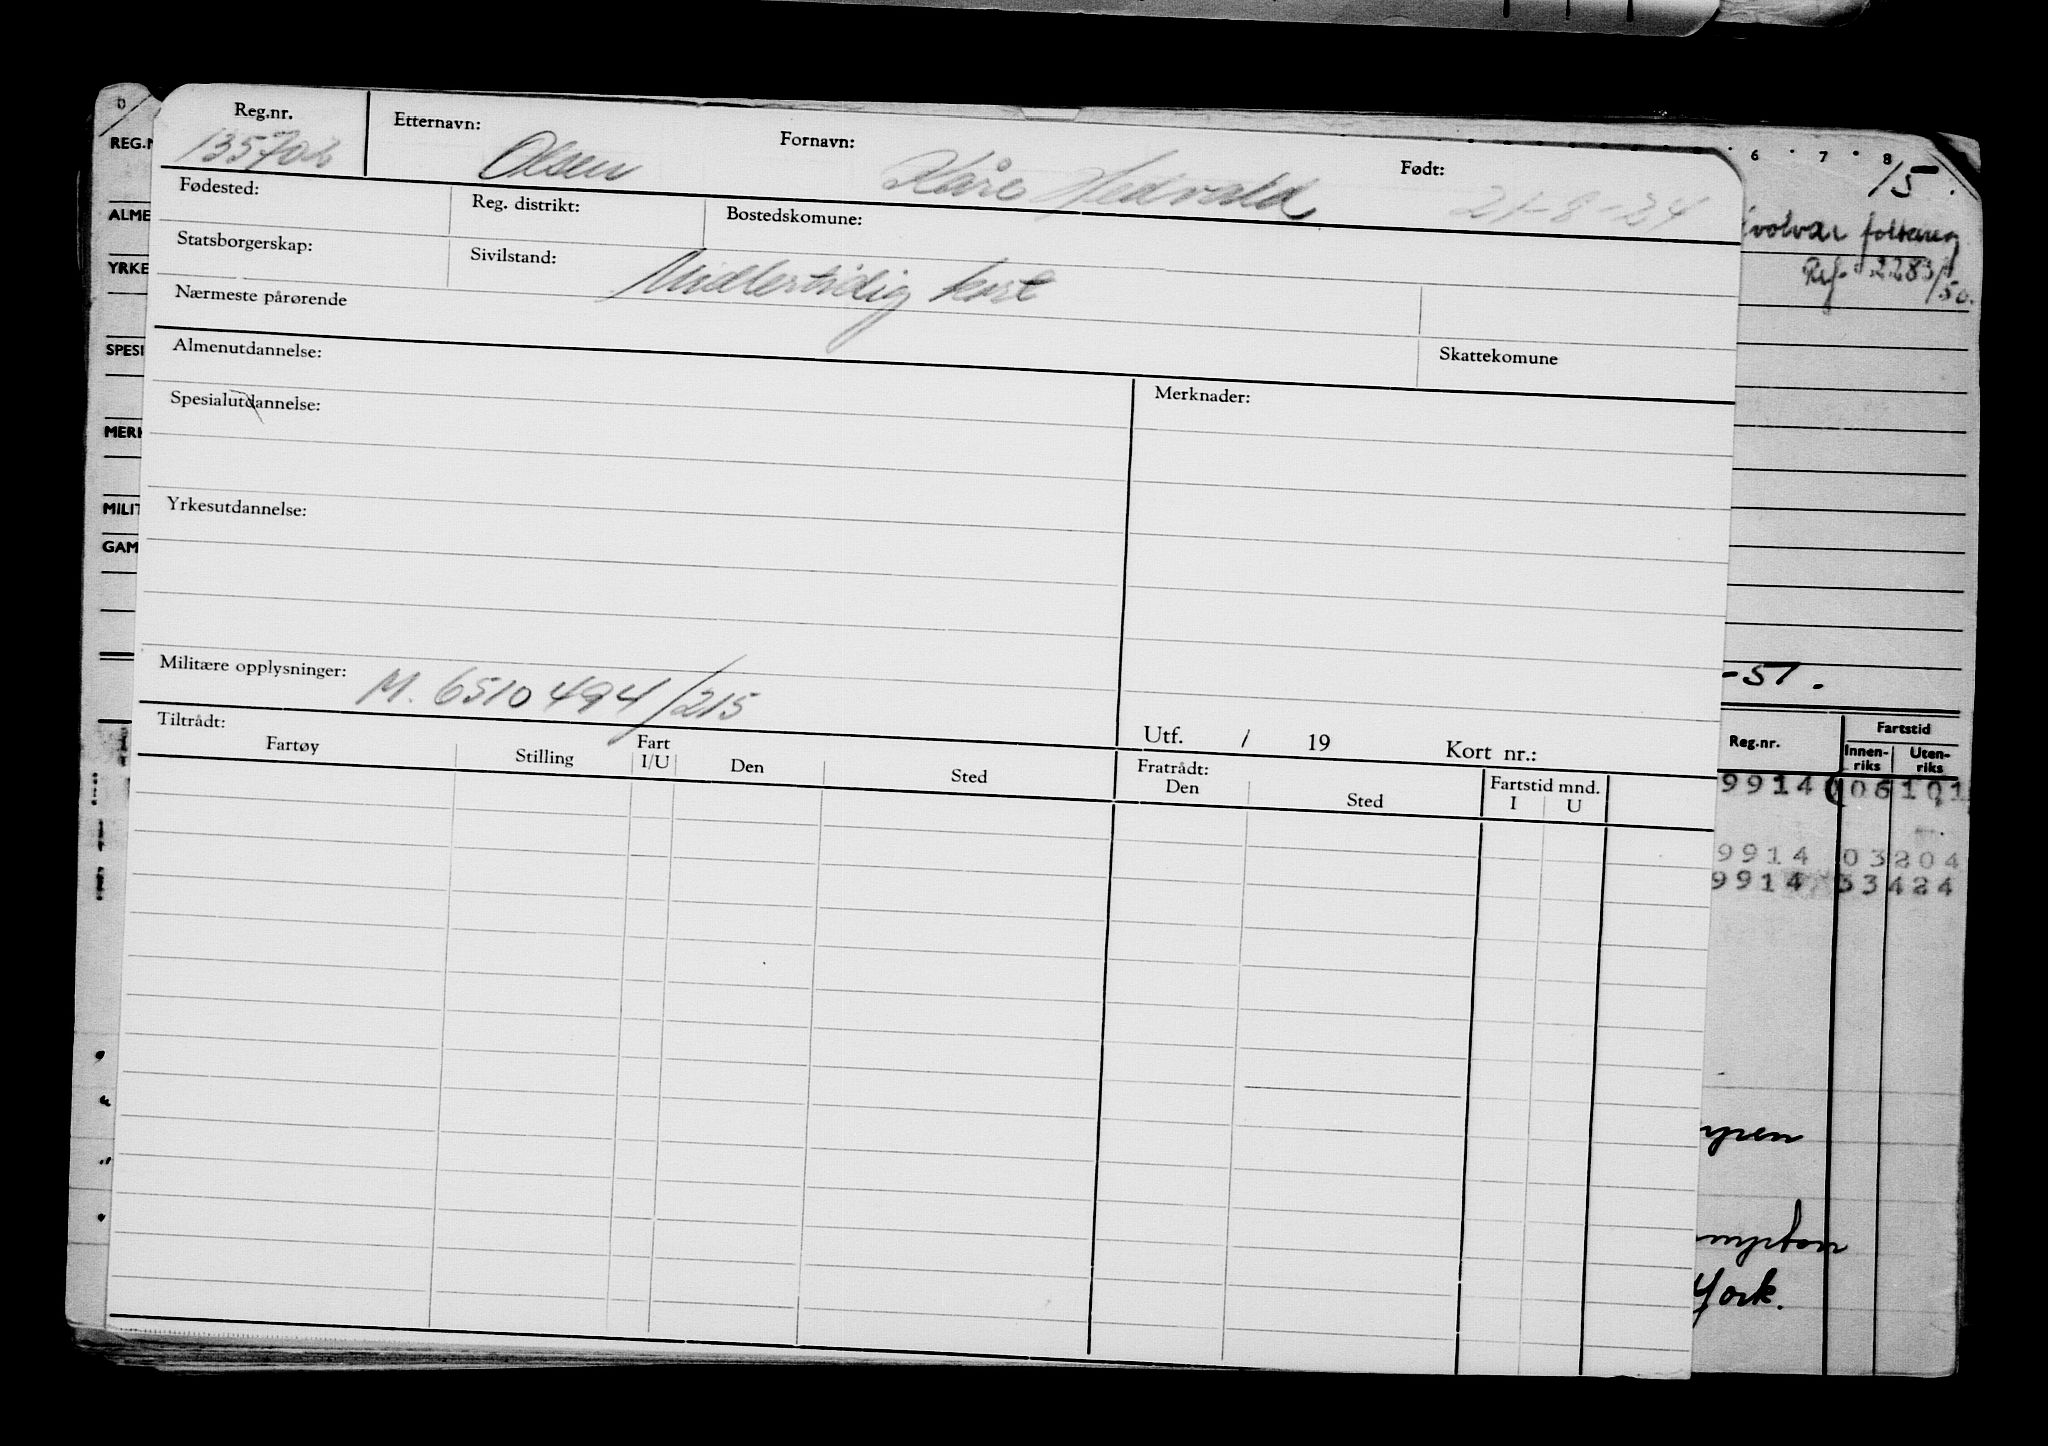 Reg.nr. Etternavn: Fornavn: Født:
Olsen Kåre Hedvald 21-8-24
Fødested: Reg. distrikt: Bostedskomune:
Statsborgerskap: Sivilstand: Midlertidig kort
Nærmeste pårørende
Almenutdannelse: Skattekomune
Spesialutdannelse: Merknader:
Yrkesutdannelse:
Militære opplysninger: M. 6510494/215
Tiltrådt: Utf. / 19 Kort nr.:
Fartøy Stilling Fart I/U Den Sted Fratrådt: Den Sted Fartstid mnd. I U
REG.N
ALME
YRKE
SPESI
MERK
MILIT
GAM
6 7 8
15.
Ref. 2283/50.
-51.
Reg.nr. Fartstid
Innen-riks Uten-riks
9914 06101
9914 03204
9914 33424
mpton
York.